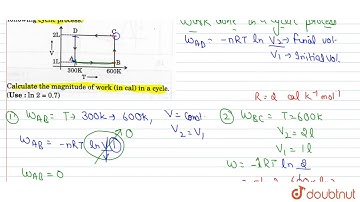 following cyclic process.
2L
D
C
V
1L
A
B
300K
600K
T
Calculate the magnitude of work (in cal) in a cycle.
(Use : ln 2 = 0.7)
Work done in a cyclic process
W_AD = -nRT ln V2 → Final vol.
V1 → Initial vol.
R = 2 cal K⁻¹ mol⁻¹
① W_AB = T → 300k → 600K, V = const
V2 = V1
W_AB = -nRT ln V/V 1 0
W_AB = 0
② W_BC = T = 600K
V2 = 2l
V1 = 1l
W = -1RT ln 2
doubtnut